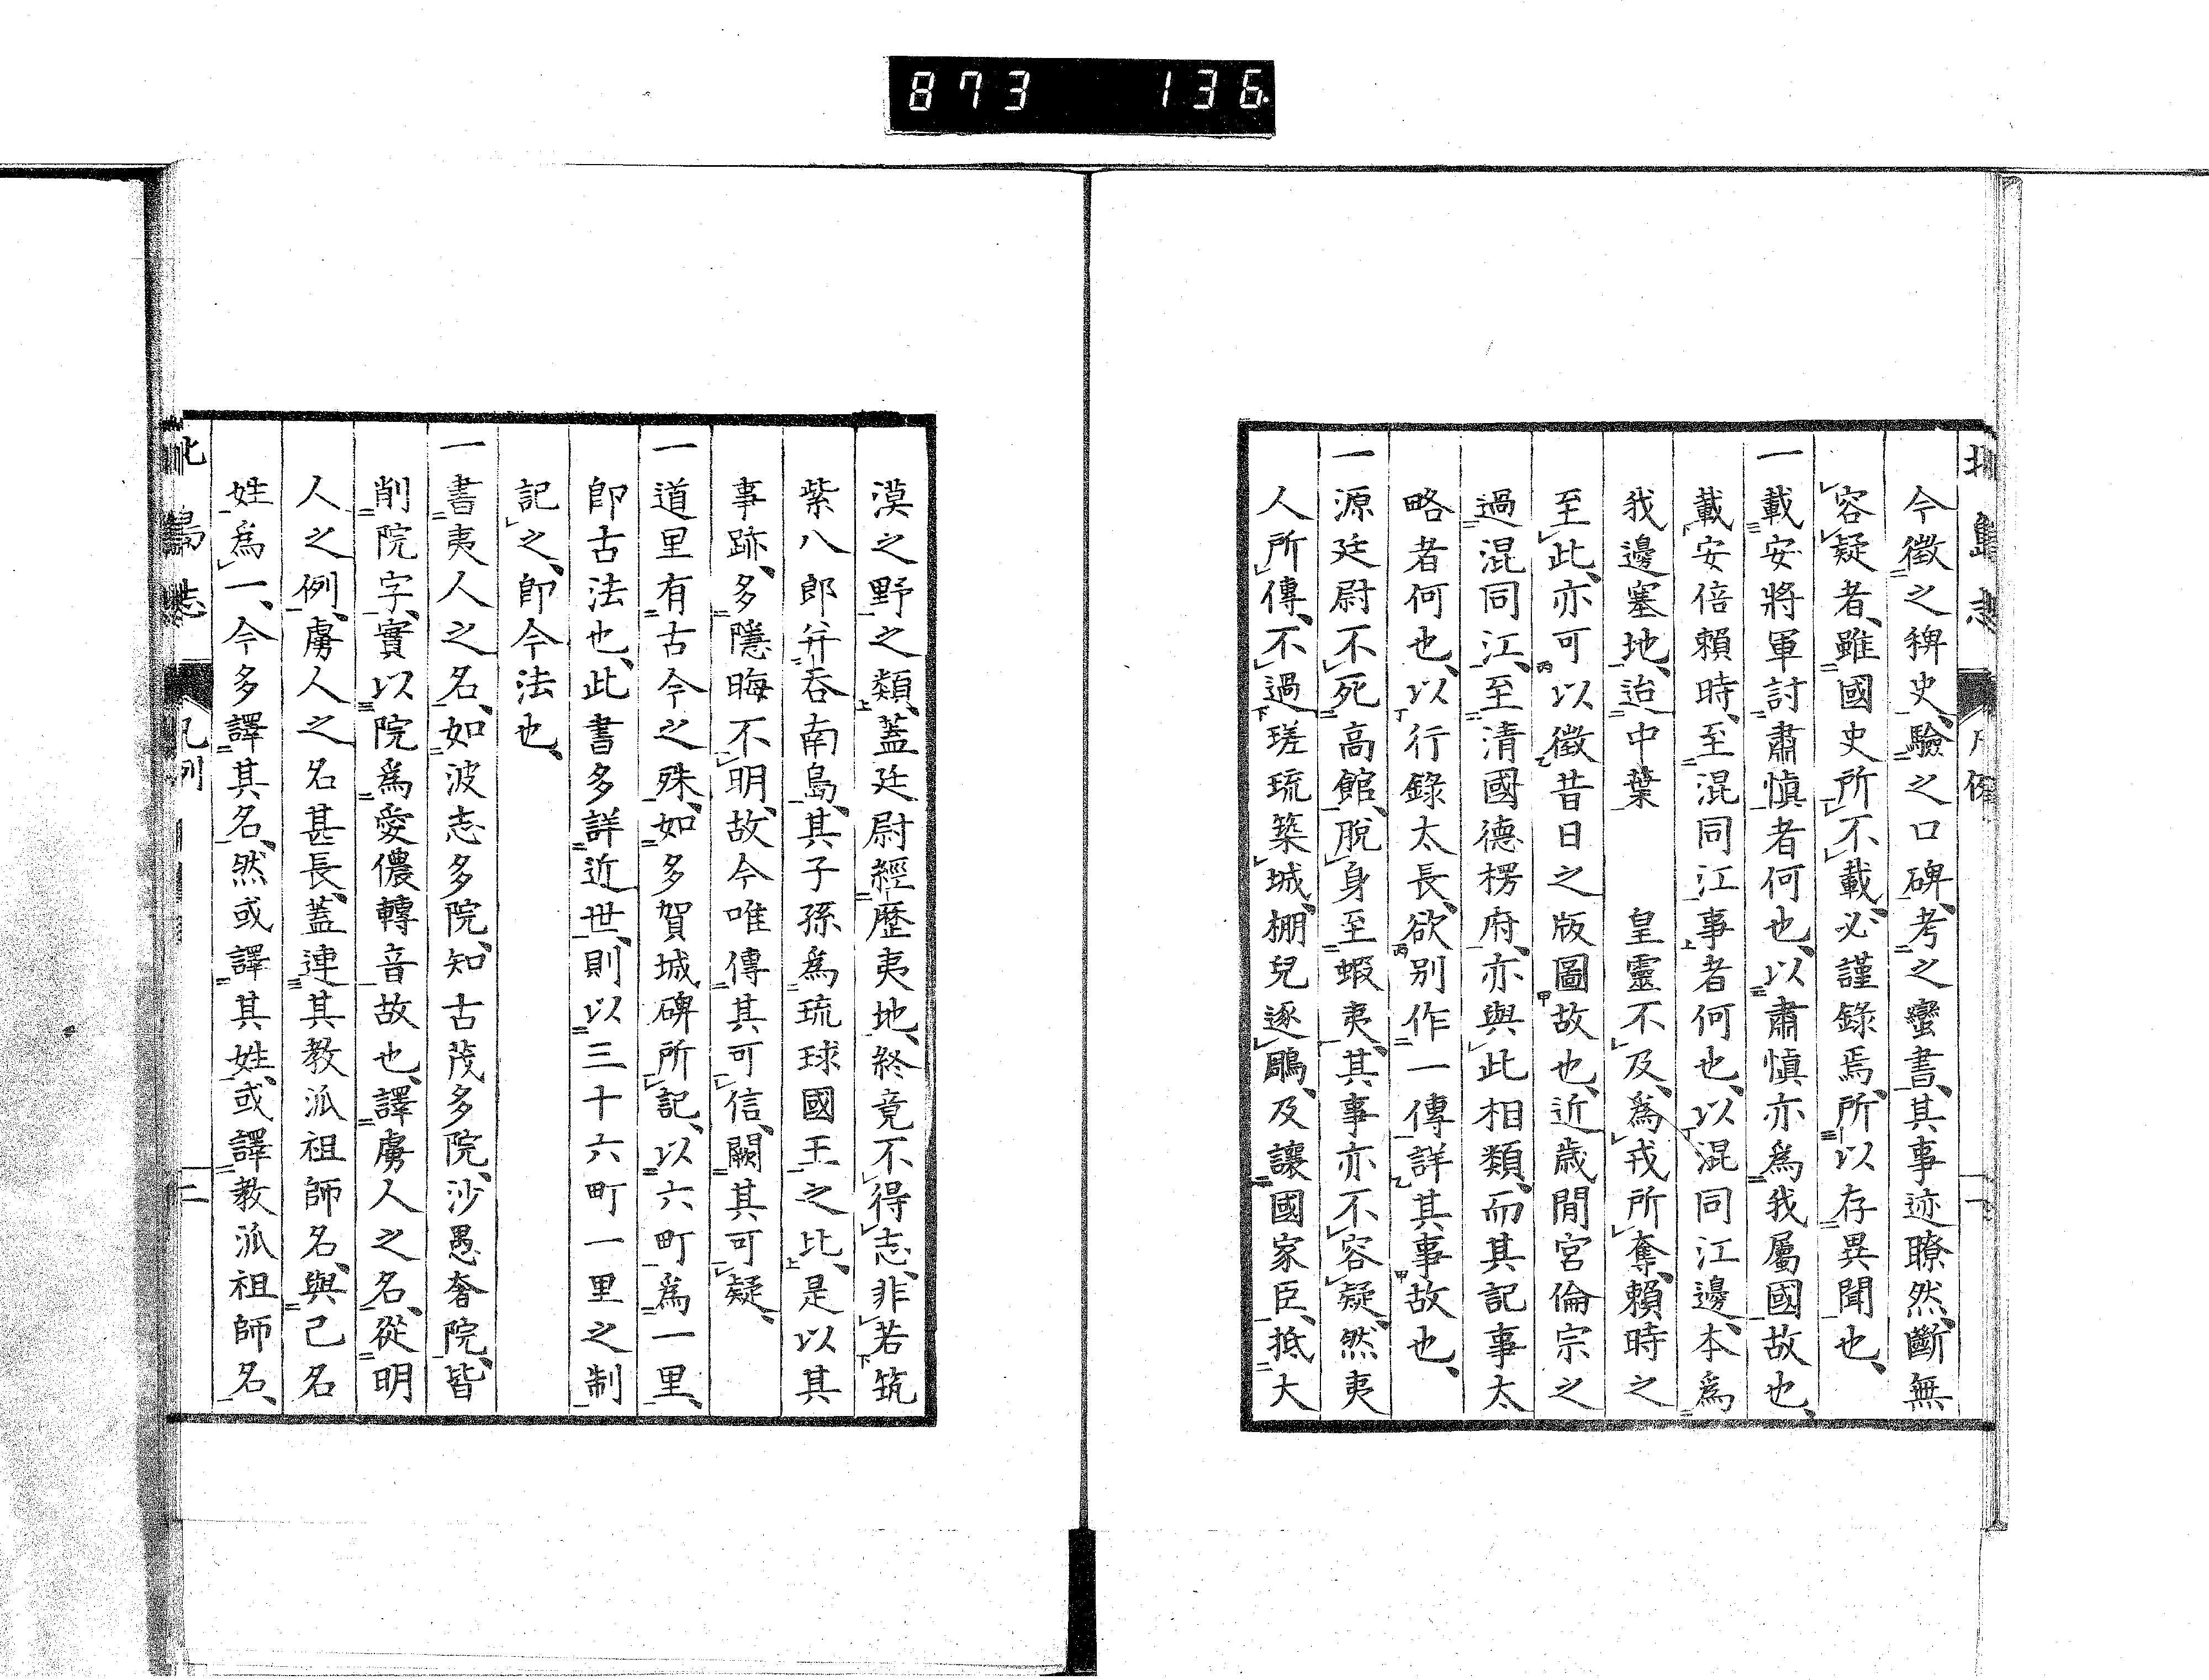 873 136
今徵之稗史、驗之口碑、考之蠻書、其事迹瞭然、斷無
容疑者、雖國史所不載、必謹錄焉、所以存異聞也、
一載安將軍討肅愼者何也、以肅愼亦爲我屬國故也、
載安倍賴時、至混同江事者何也、以混同江邊、本爲
我邊塞地、迨中葉　皇靈不及、爲戎所奪、賴時之
至此、亦可以徵昔日之版圖故也、近歲間宮倫宗之
過混同江、至清國德楞府、亦與此相類、而其記事太
略者何也、以行錄太長、欲別作一傳詳其事故也、
一源廷尉不死高館、脫身至蝦夷、其事亦不容疑、然夷
人所傳、不過瑳琉築城、棚兒逐鵰、及讓國家臣、抵大
漠之野之類、蓋廷尉經歷夷地、終竟不得志、非若筑
紫八郎并吞南島、其子孫爲琉球國王之比、是以其
事跡、多隱晦不明、故今唯傳其可信、闕其可疑、
一道里有古今之殊、如多賀城碑所記、以六町爲一里、
卽古法也、此書多詳近世、則以三十六町一里之制
記之、卽今法也、
一書夷人之名、如波志多院、知古茂多院、沙愚奢院、皆
削院字、實以院爲愛儂轉音故也、譯虜人之名、從明
人之例、虜人之名甚長、蓋連其教派祖師名、與己名
姓爲一、今多譯其名、然或譯其姓、或譯教派祖師名、
北島志 凡例 二